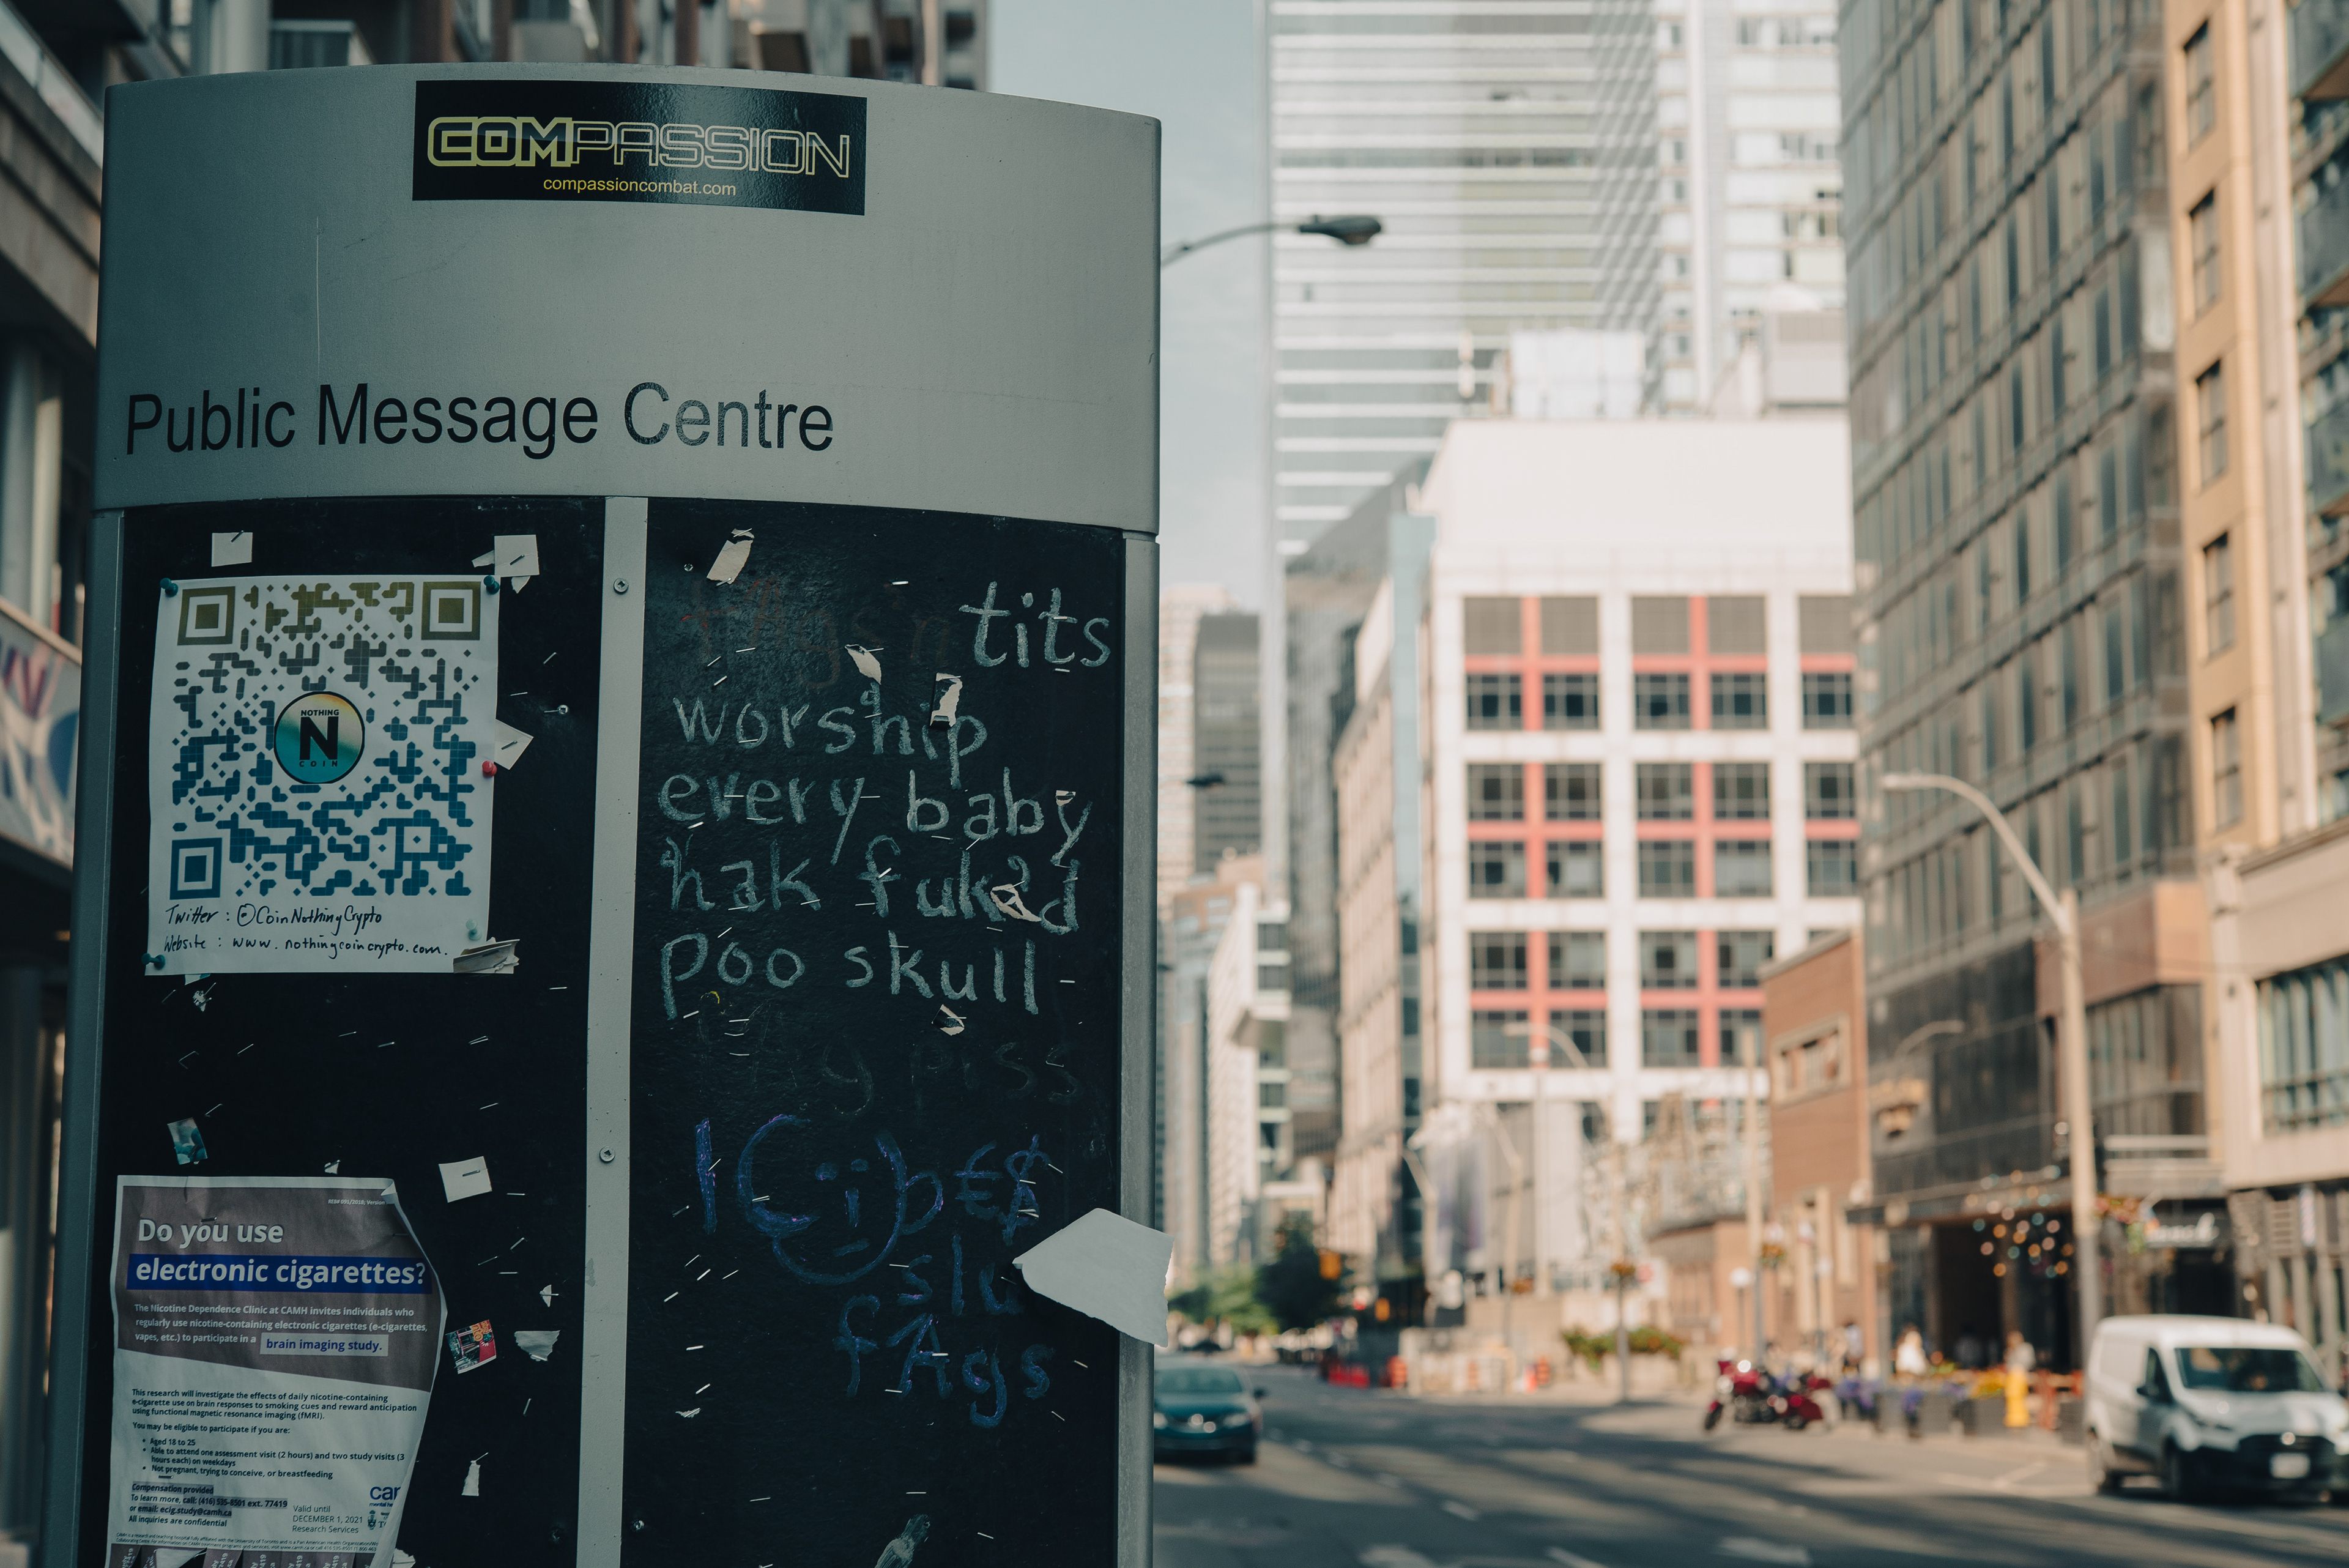 COMPASSION
compassioncombat.com
Public Message Centre
NOTHING
N
COIN
Twitter : @CoinNothingCrypto
Website : www.nothingcoincrypto.com.
tits
worship
every baby
hak fukad
poo skull
piss
slu
fAgs
Do you use
electronic cigarettes?
The Nicotine Dependence Clinic at CAMH invites individuals who
regularly use nicotine-containing electronic cigarettes (e-cigarettes,
vapes, etc.) to participate in a brain imaging study.
This research will investigate the effects of daily nicotine-containing
e-cigarette use on brain responses to smoking cues and reward anticipation
using functional magnetic resonance imaging (fMRI).
You may be eligible to participate if you are:
• Aged 18 to 25
• Able to attend one assessment visit (2 hours) and two study visits (3
hours each) on weekdays
• Not pregnant, trying to conceive, or breastfeeding
Compensation provided
To learn more, call: (416) 535-8501 ext. 77419
or email: ecig.study@camh.ca
All inquiries are confidential
Valid until
DECEMBER 1, 2021
Research Services